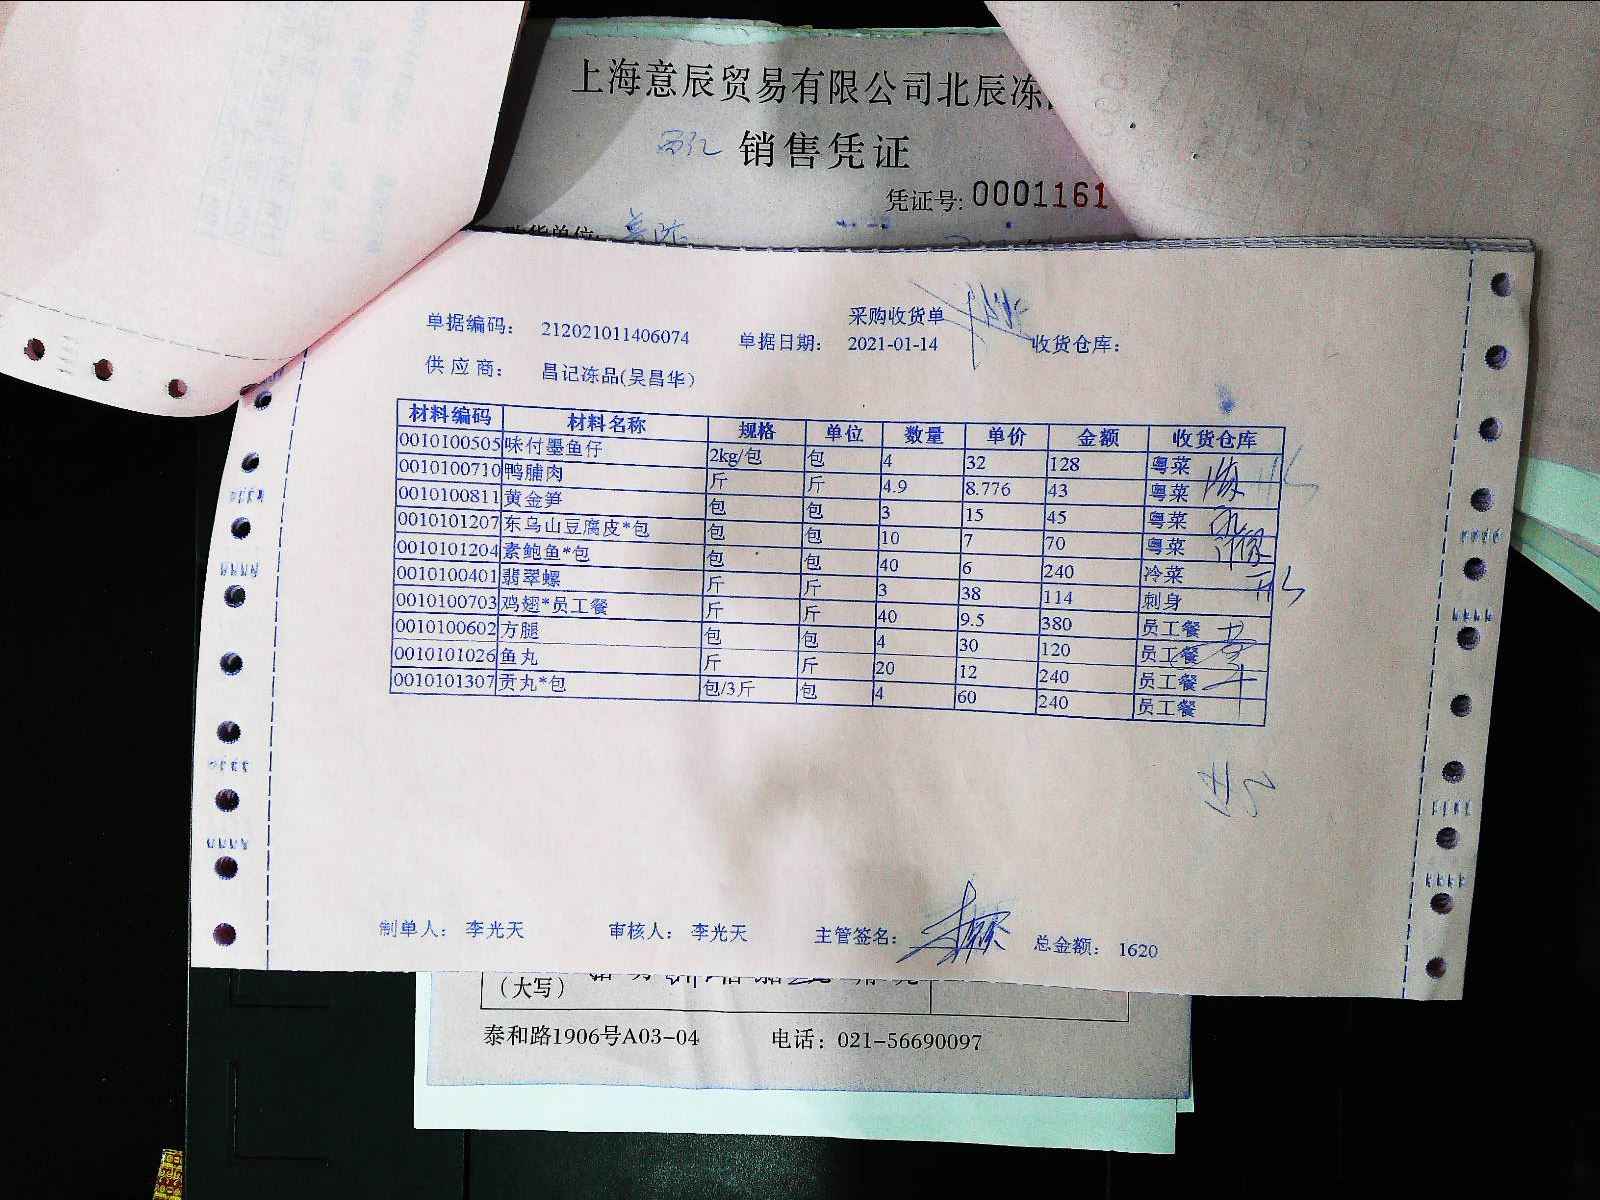 上海意辰贸易有限公司北辰冻
销售凭证
凭证号: 0001161
采购收货单
单据编码: 212021011406074 单据日期: 2021-01-14 收货仓库:
供应商: 昌记冻品(吴昌华)
材料编码 材料名称 规格 单位 数量 单价 金额 收货仓库
0010100505 味付墨鱼仔 2kg/包 包 4 32 128 粤菜
0010100710 鸭脯肉 斤 斤 4.9 8.776 43 粤菜
0010100811 黄金笋 包 包 3 15 45 粤菜
0010101207 东乌山豆腐皮*包 包 包 10 7 70 粤菜
0010101204 素鲍鱼*包 包 包 40 6 240 冷菜
0010100401 翡翠螺 斤 斤 3 38 114 刺身
0010100703 鸡翅*员工餐 斤 斤 40 9.5 380 员工餐
0010100602 方腿 包 包 4 30 120 员工餐
0010101026 鱼丸 斤 斤 20 12 240 员工餐
0010101307 贡丸*包 包/3斤 包 4 60 240 员工餐
制单人: 李光天 审核人: 李光天 主管签名: 总金额: 1620
(大写)
泰和路1906号A03-04 电话: 021-56690097